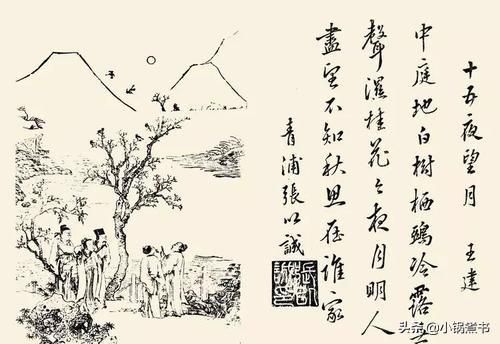 十五夜望月 王建
中庭地白樹栖鴉冷露無
聲濕桂花今夜月明人
盡望不知秋思在誰家
青浦張以誠
头条 @小锅煮书